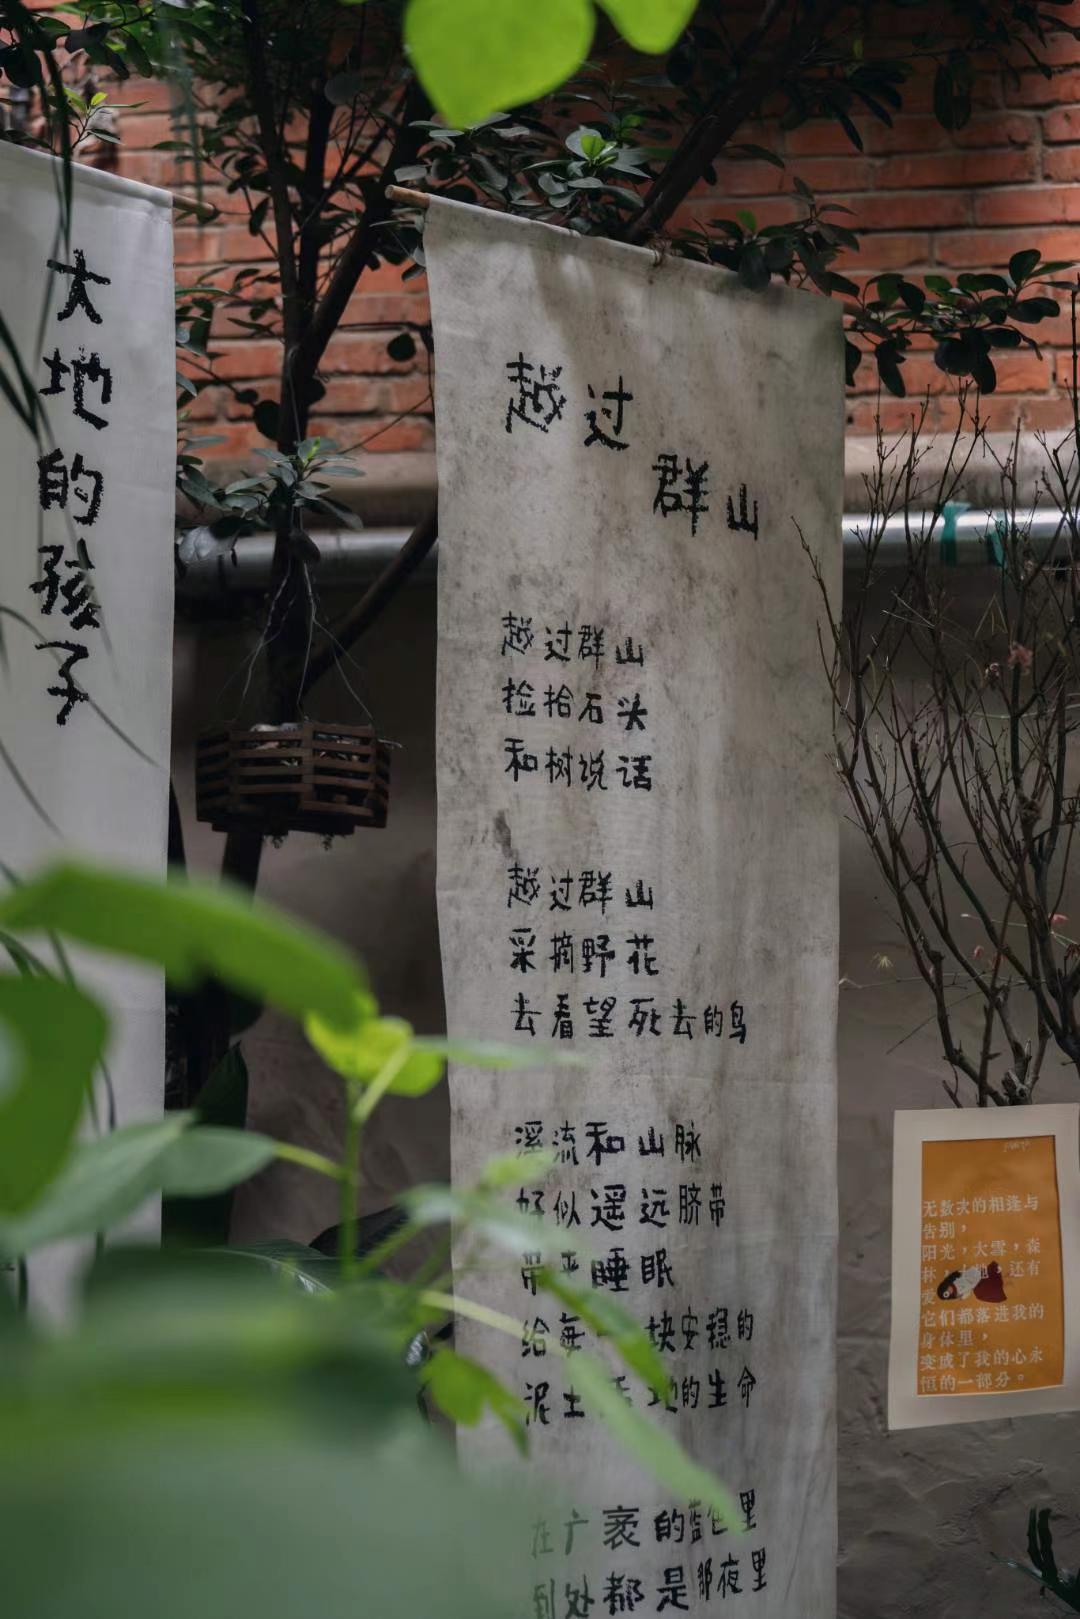 大地的孩子
越过
群山
越过群山
捡拾石头
和树说话
越过群山
采摘野花
去看望死去的鸟
溪流和山脉
好似遥远脐带
带来睡眠
给每一块安稳的
泥土 地的生命
在广袤的蓝色里
到处都是那夜里
无数次的相逢与
告别，
阳光，大雪，森
林，大地，还有
爱。
它们都落进我的
身体里，
变成了我的心永
恒的一部分。